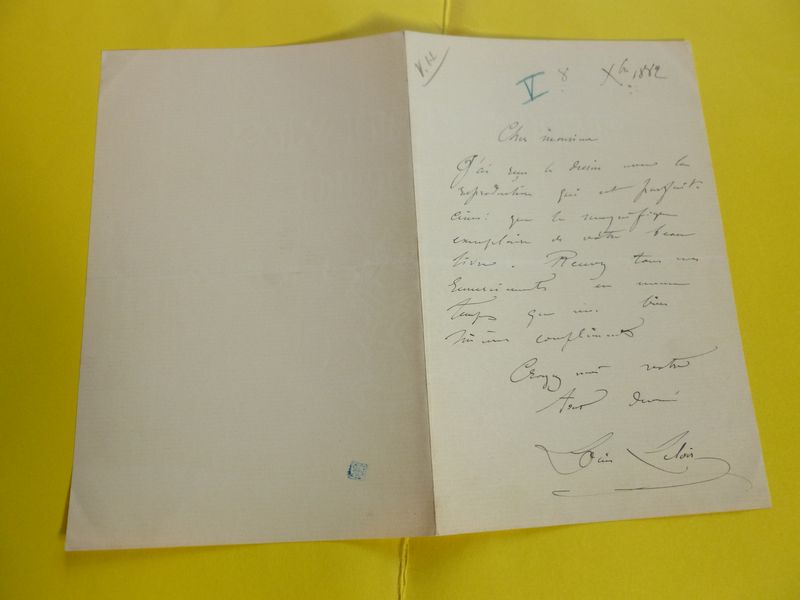 V.H.
V 8 Xbre 1882
Cher monsieur
J'ai reçu le dessin avec la
reproduction qui est parfaite
ainsi que le magnifique
exemplaire de votre beau
livre. Recevez tous mes
remerciments en même
temps que mes bien
sincères compliments
Croyez moi votre
tout dévoué
Louis Leloir